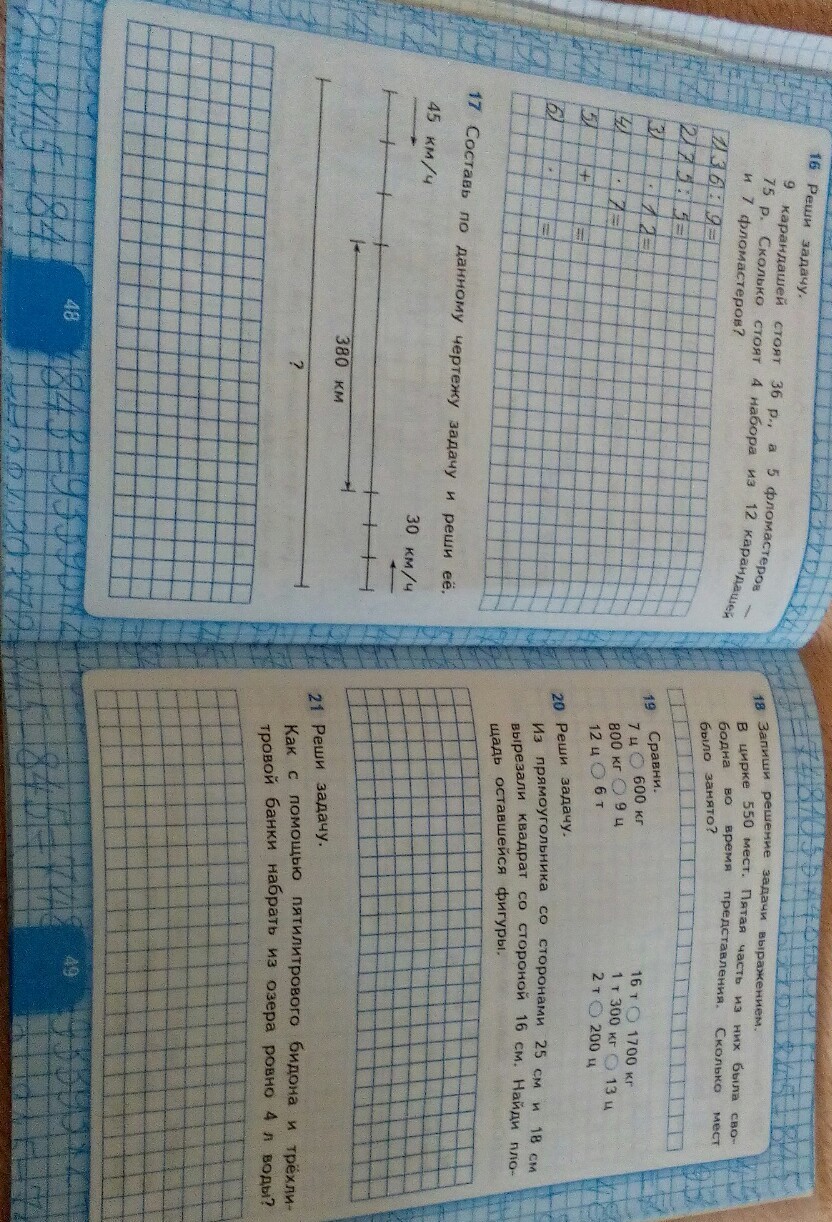 16 Реши задачу.
9 карандашей стоят 36 р., а 5 фломастеров —
75 р. Сколько стоят 4 набора из 12 карандашей
и 7 фломастеров?
1) 36 : 9 =
2) 75 : 5 =
3) · 12 =
4) · 7 =
5) + =
6) · =
17 Составь по данному чертежу задачу и реши её.
45 км/ч
30 км/ч
380 км
?
48
18 Запиши решение задачи выражением.
В цирке 550 мест. Пятая часть из них была сво-
бодна во время представления. Сколько мест
было занято?
19 Сравни.
7 ц ○ 600 кг
16 т ○ 1700 кг
800 кг ○ 9 ц
1 т 300 кг ○ 13 ц
12 ц ○ 6 т
2 т ○ 200 ц
20 Реши задачу.
Из прямоугольника со сторонами 25 см и 18 см
вырезали квадрат со стороной 16 см. Найди пло-
щадь оставшейся фигуры.
21 Реши задачу.
Как с помощью пятилитрового бидона и трёхли-
тровой банки набрать из озера ровно 4 л воды?
49